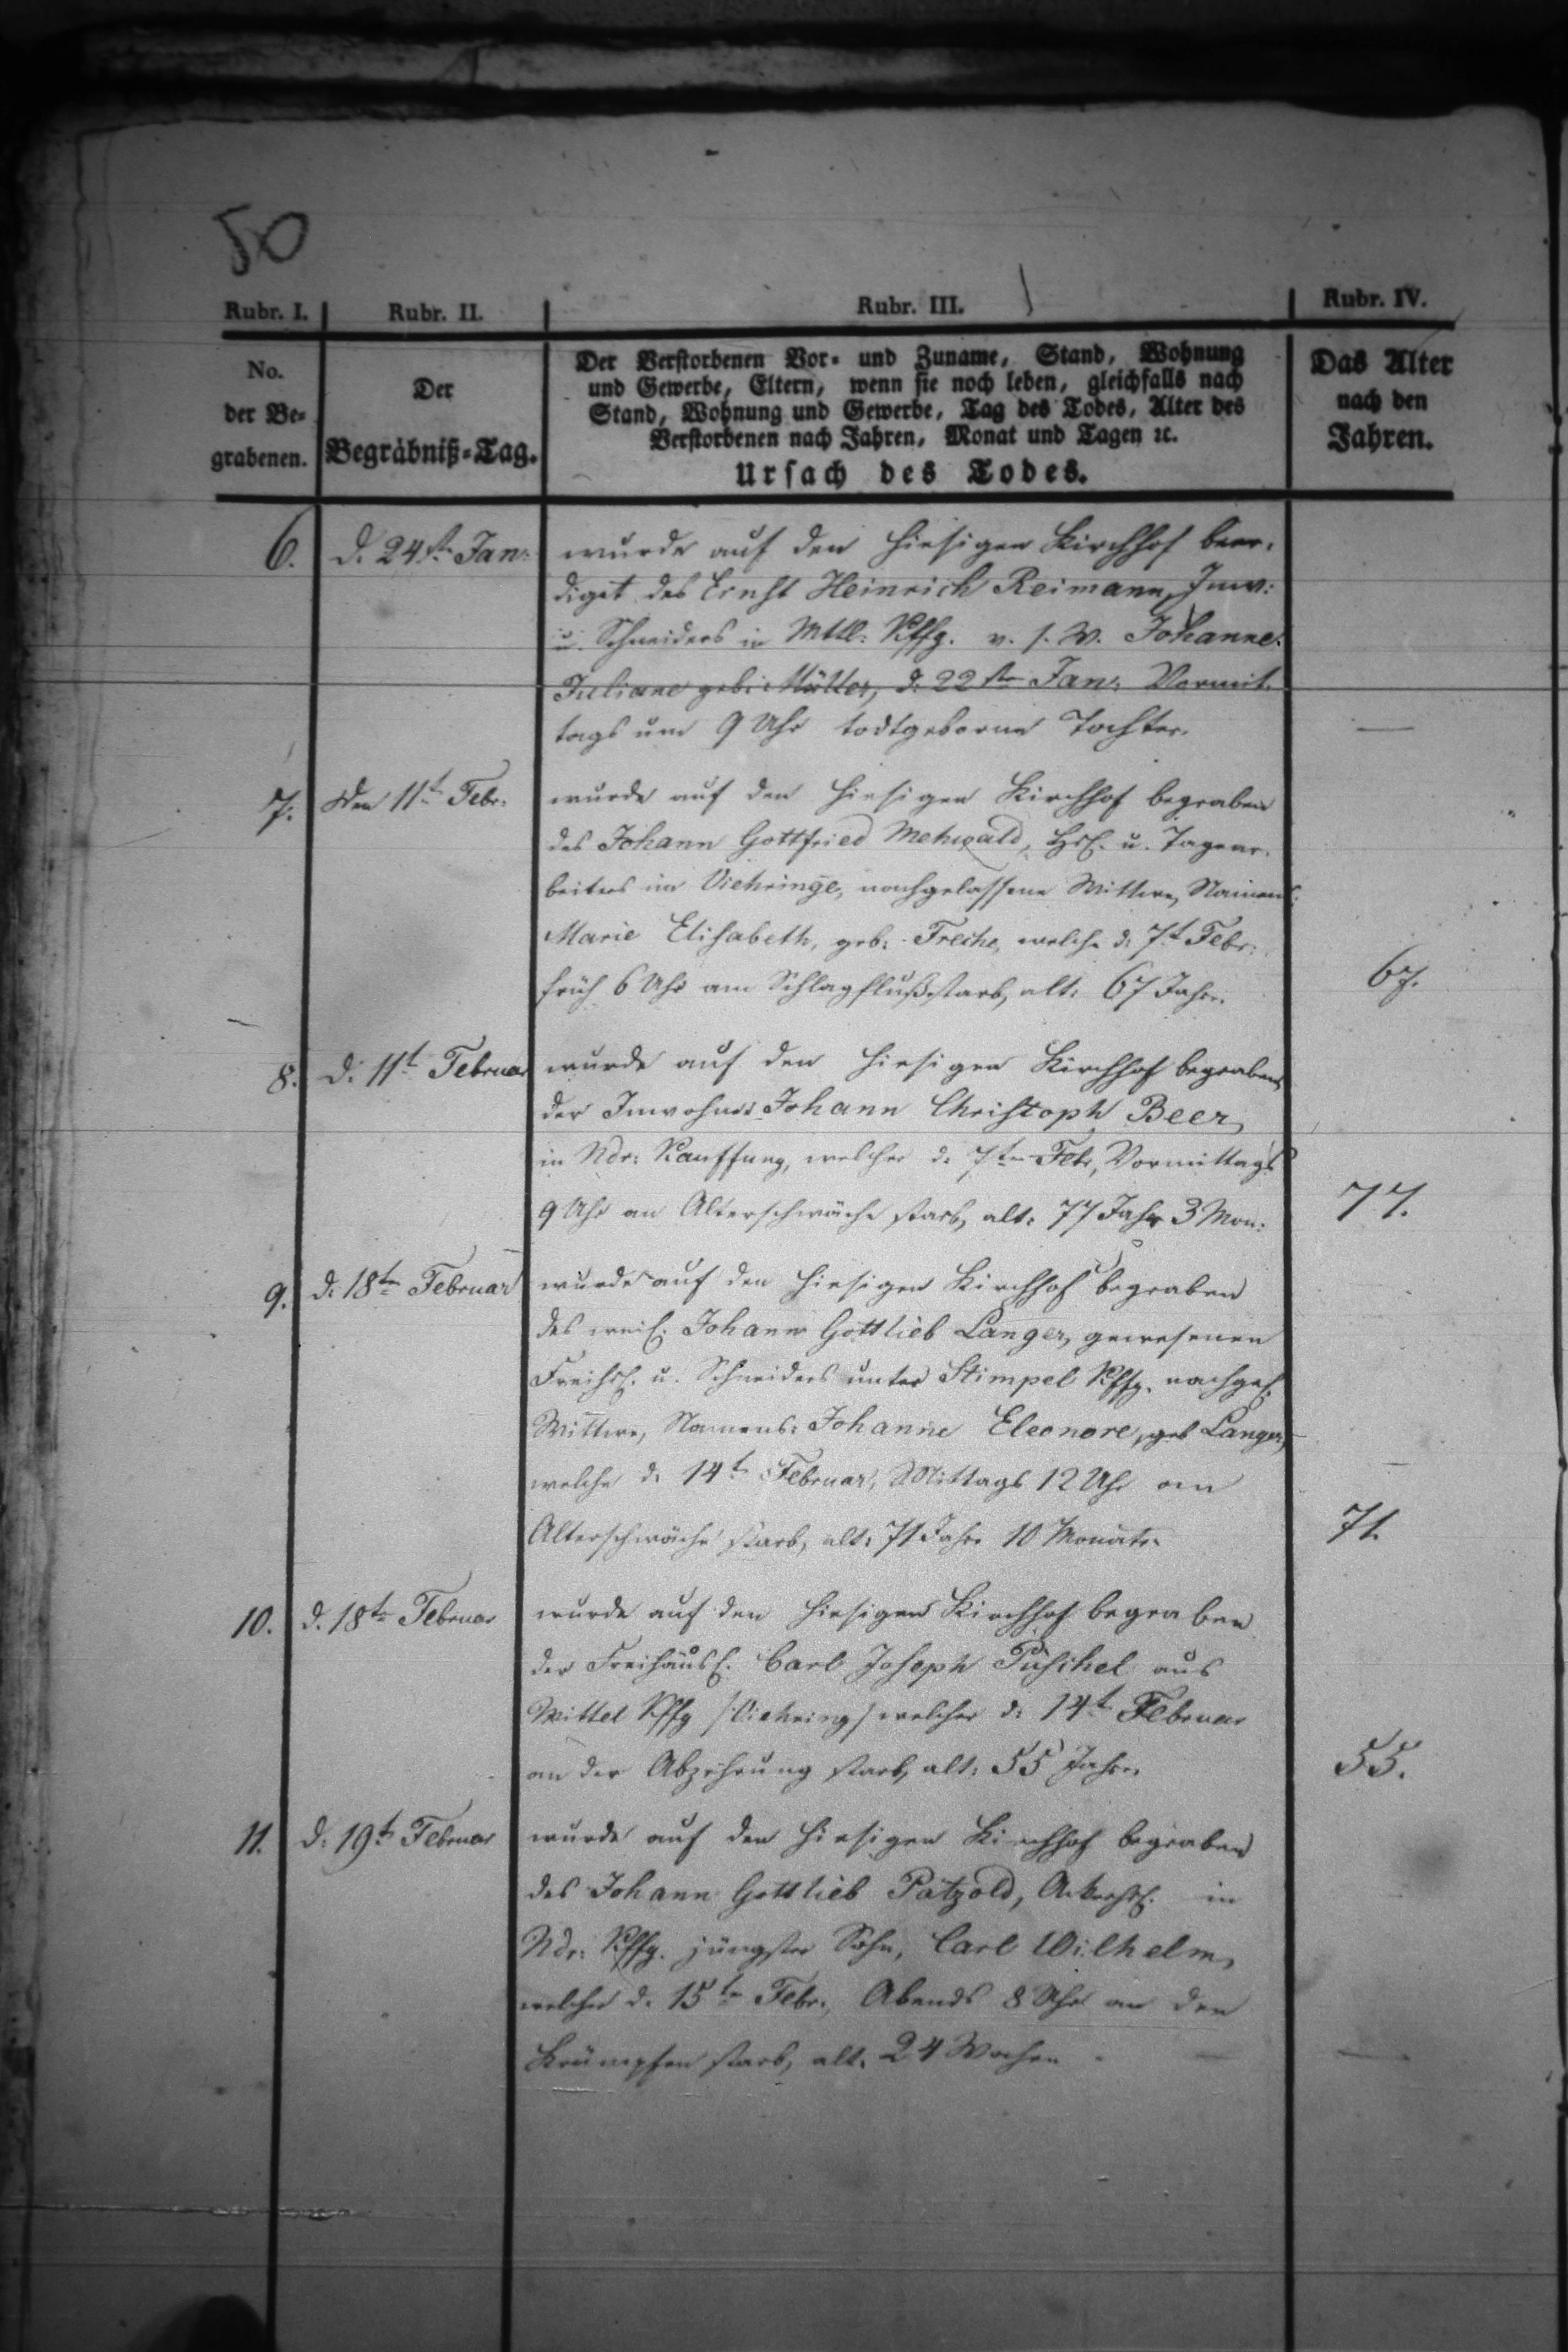 50
Rubr. I. Rubr. II. Rubr. III. Rubr. IV.
No. der Be-grabenen.
Der Begräbniß-Tag.
Der Verstorbenen Vor- und Zuname, Stand, Wohnung
und Gewerbe, Eltern, wenn sie noch leben, gleichfalls nach
Stand, Wohnung und Gewerbe, Tag des Todes, Alter des
Verstorbenen nach Jahren, Monat und Tagen ꝛc.
Ursach des Todes.
Das Alter
nach den
Jahren.
6. d. 24st. Jan: wurde auf den hiesigen Kirchhof beer-
diget des Ernst Heinrich Reimann, Inw:
u. Schneiders in Mttl: Kffg. v. s. W. Johanne
Juliane geb: Müller, d. 22ste Jan: Vormit-
tags um 9 Uhr todtgeborne Tochter. —
7. Den 11t Febr: wurde auf den hiesigen Kirchhof begraben
des Johann Gottfried Mehwald, Hsl. u. Tagear-
beiters im Viehringe, nachgelassene Wittwe, Namens:
Marie Elisabeth, geb: Freche, welche d: 7t Febr:
früh 6 Uhr am Schlagfluß starb, alt: 67 Jahr. 67.
8. d. 11t Februar wurde auf den hiesigen Kirchhof begraben
der Inwohner Johann Christoph Beer,
in Ndr: Kauffung, welcher d. 7ten Febr, Vormittags
9 Uhr an Alterschwäche starb, alt: 77 Jahr 3 Mon: 77.
9. d: 18ten Februar wurde auf den hiesigen Kirchhof begraben
des weil. Johann Gottlieb Langer, gewesenen
Freihsl. u. Schneiders unter Stimpel Kffg. nachgel.
Wittwe, Namens: Johanne Eleonore, geb Langer,
welche d. 14t Februar, Mittags 12 Uhr an
Alterschwäche starb, alt: 71 Jahr 10 Monate. 71.
10. d. 18te Februar wurde auf den hiesigen Kirchhof begraben
der Freihäusl. Carl Joseph Püschel aus
Mittel Kffg /:Viehring/ welcher d: 14t Februar
an der Abzehrung starb, alt: 55 Jahr. 55.
11. d: 19t Februar wurde auf den hiesigen Kirchhof begraben
des Johann Gottlieb Pätzold, Ackerhsl. in
Ndr: Kffg. jüngster Sohn, Carl Wilhelm,
welcher d. 15te Febr., Abends 8 Uhr an den
Krämpfen starb, alt. 24 Wochen —